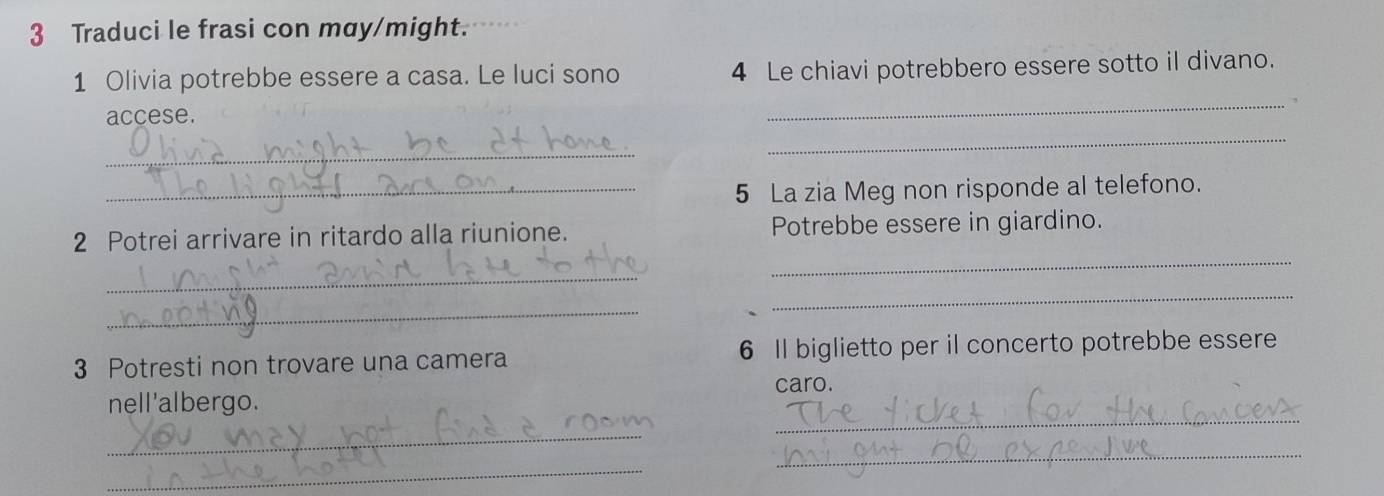 3 Traduci le frasi con may/might.
1 Olivia potrebbe essere a casa. Le luci sono
accese.
Olivia might be at home.
The lights are on.
2 Potrei arrivare in ritardo alla riunione.
I might arrive late to the
meeting
3 Potresti non trovare una camera
nell'albergo.
You may not find a room
in the hotel
4 Le chiavi potrebbero essere sotto il divano.
5 La zia Meg non risponde al telefono.
Potrebbe essere in giardino.
6 Il biglietto per il concerto potrebbe essere
caro.
The ticket for the concert
might be expensive